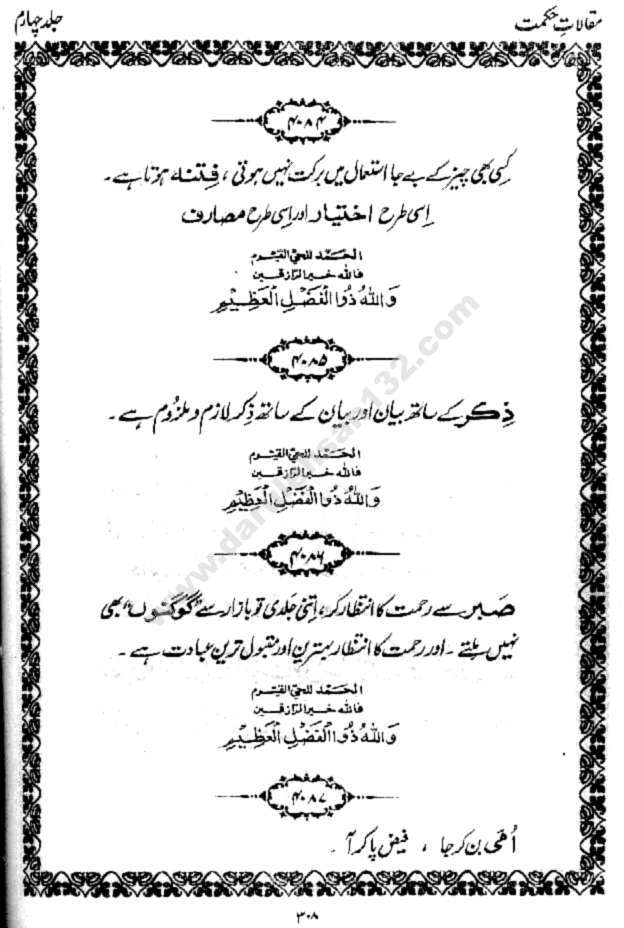 مقالاتِ حکمت
جلد چہارم
۴۰۸۴
کِسی بھی چیز کے بے جا استعمال میں برکت نہیں ہوتی ، فِتنہ ہوتا ہے۔
اِسی طرح اختیار اور اِسی طرح مصارف
الحَمد للحيّ القيّوم
فالله خير الرّازقين
وَاللهُ ذُوا الْفَضْلِ الْعَظِيْمِ
۴۰۸۵
ذِکر کے ساتھ بیان اور بیان کے ساتھ ذِکر لازم و ملزُوم ہے۔
الحَمد للحيّ القيّوم
فالله خير الرّازقين
وَاللهُ ذُوا الْفَضْلِ الْعَظِيْمِ
۴۰۸۶
صَبر سے رحمت کا انتظار کر، اِتنی جلدی تو بازار سے "گوگنوں" بھی
نہیں ملتے ۔ اور رحمت کا انتظار بہترین اور مقبول ترین عبادت ہے۔
الحَمد للحيّ القيّوم
فالله خير الرّازقين
وَاللهُ ذُوا الْفَضْلِ الْعَظِيْمِ
۴۰۸۷
اُمّی بن کر جا ، فیض پا کر آ ۔
۳۰۸
www.darulehsan132.com